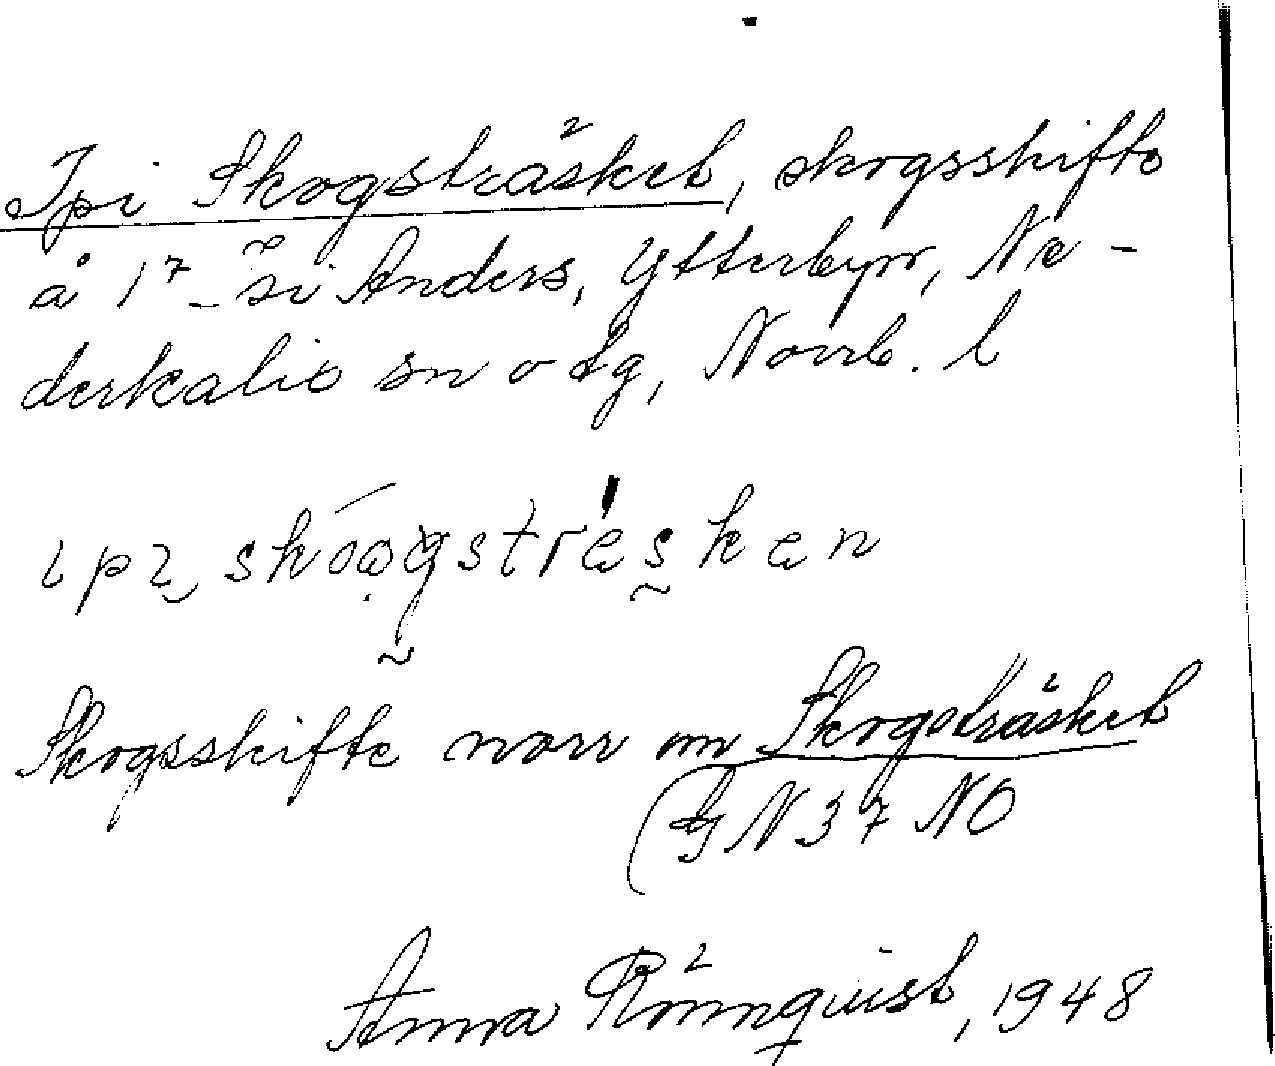 Ipi Skogsträsket, skogsskifte
å 17 – si Anders, Ytterbyn, Ne-
derkalix sn o tg, Norrb. l
ipi skóogstrèsken
Skogsskifte norr om Skogsträsket
(GN 37 NO
Anna Rönnquist, 1948